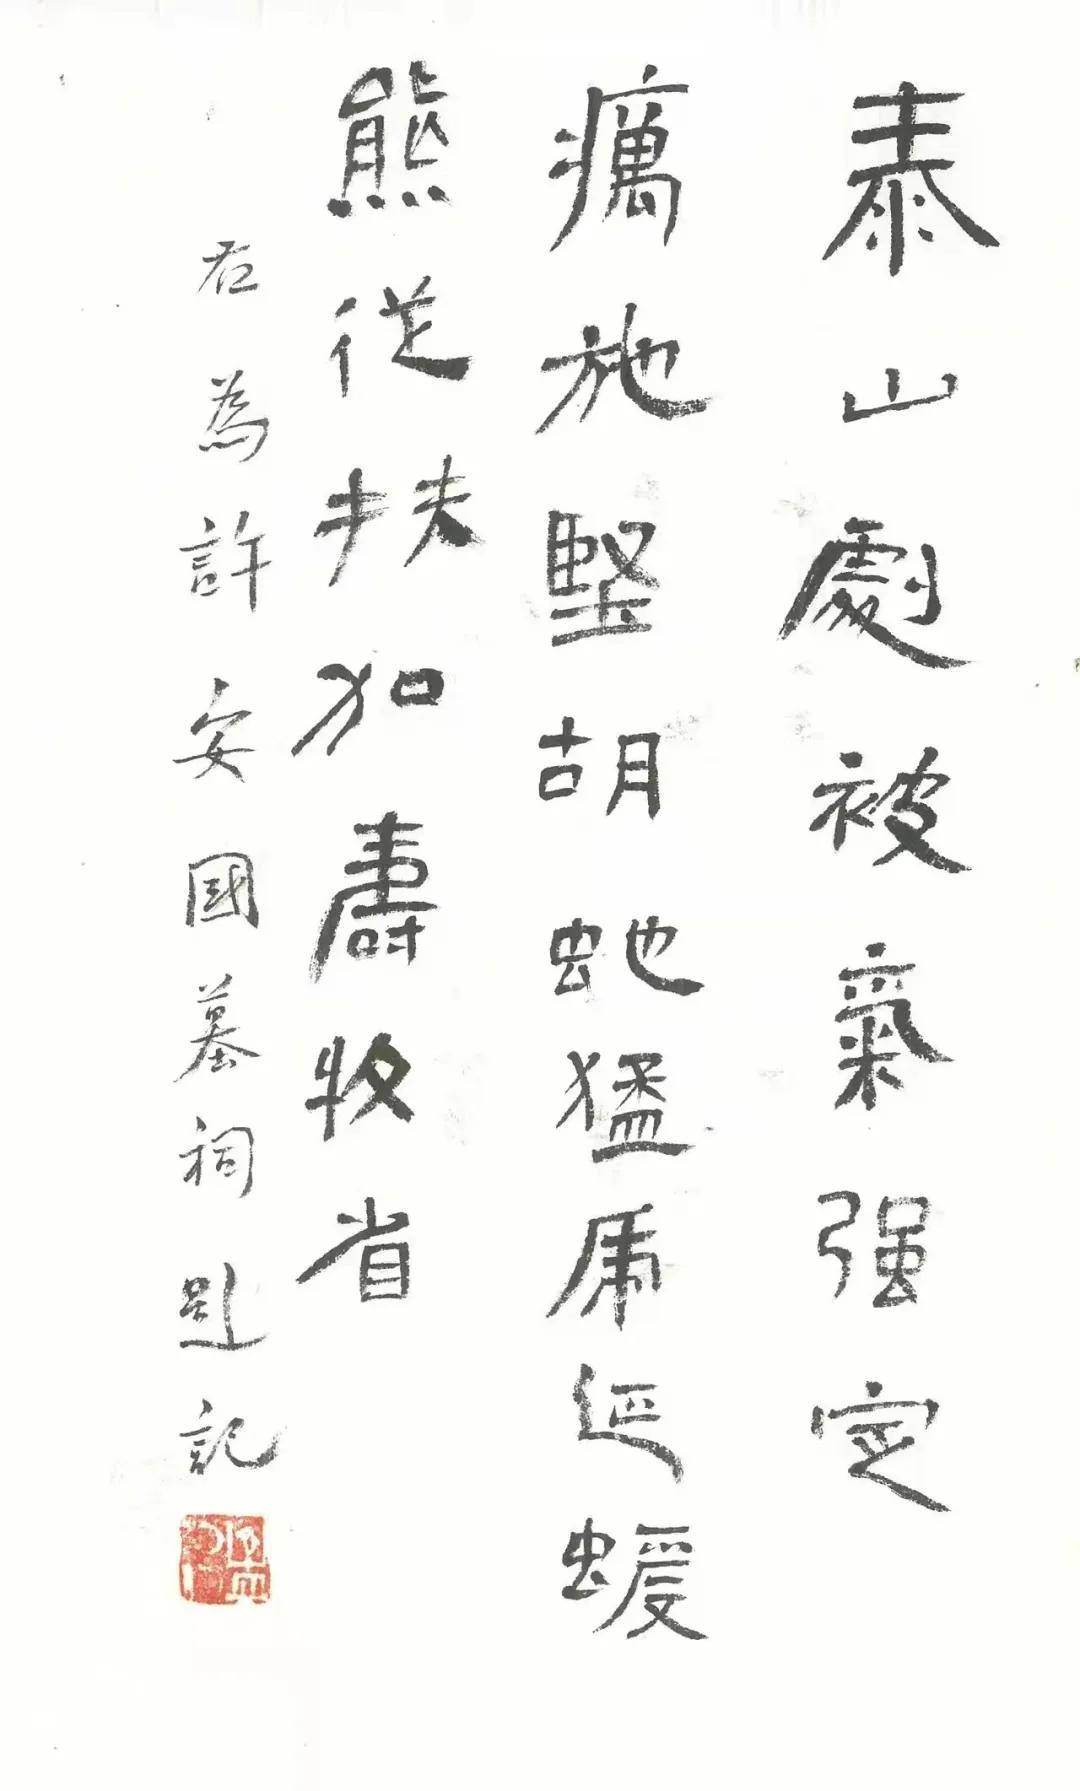 泰山劇被氣强定
癘施堅胡虵猛虎延蝯
熊従扶加壽牧省
右為許安國墓祠題記